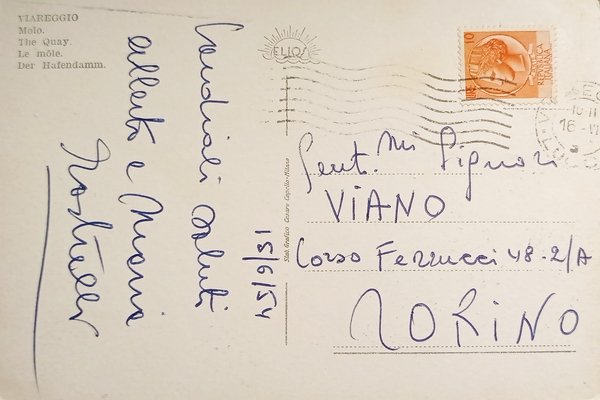 VIAREGGIO
Molo.
The Quay.
Le môle.
Der Hafendamm.
ELIOS
LIRE 10
REPUBBLICA
ITALIANA
Cordiali saluti
Alberto e
15/9/51
Stab. Grafico Cesare Capello-Milano
Gent.mi Signori
VIANO
Corso Ferrucci 48-2/A
TORINO